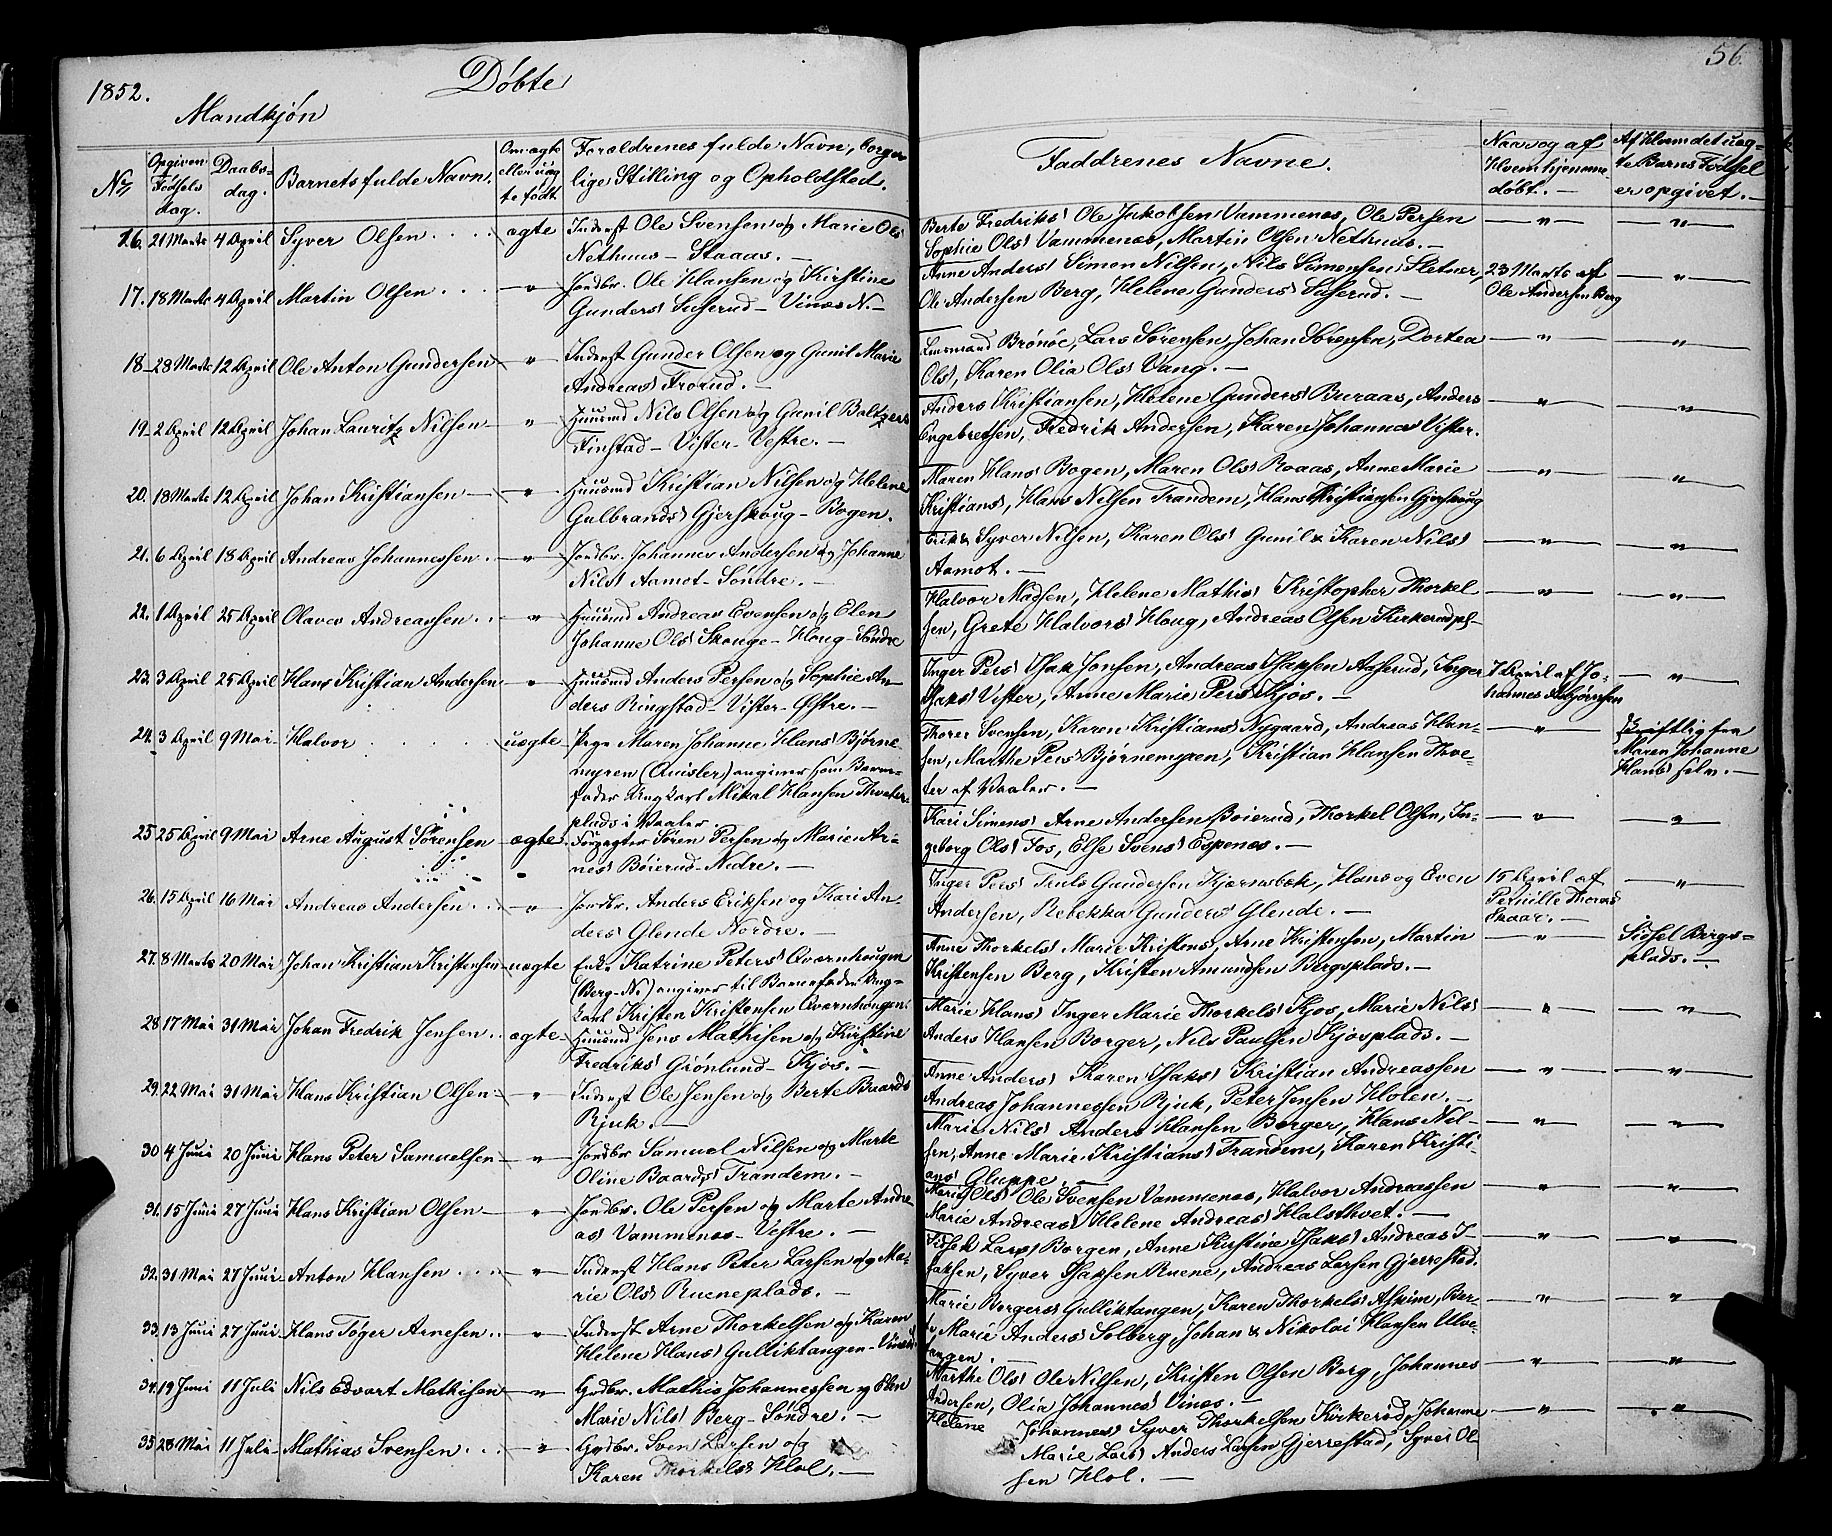 1852.
Døbte
56.
Mandkjøn
No
Opgiven Fødsels dag.
Daabs-dag.
Barnets fulde Navn.
Om ægte eller uægte født
Forældrenes fulde Navn, borgerlige Stilling og Opholdsted.
Faddrenes Navne.
Naar og af Hvem hjemmedøbt. —
Af Hvem det uægte Barns Fødsel er opgivet. —
16. 21 Marts 4 April Syver Olsen ægte Inderst Ole Svensen og Marie Ols
Nethuus – Staaas. —
Berte Fredriks Ole Jakobsen Vammenæs, Ole Persen — " — — " —
Sophie Ols Vammenæs, Martin Olsen Nethuus. —
17. 18 Marts 4 April Martin Olsen — " — Jordbr. Ole Hansen og Kirstine
Gunders Suserud – Vinæs N. —
Anne Anders Simon Nilsen, Nils Simensen Sletner, 23 Marts af — " —
Ole Andersen Berg, Helene Gunders Suserud. — Ole Andersen Berg
18 28 Marts 12 April Ole Anton Gundersen — " — Inderst Gunder Olsen og Gunil Marie
Andreas Frorud. —
Lensmand Brønøe, Lars Sørensen, Johan Sørensen, Dortea — " — — " —
Ols, Karen Olia Ols Vang. —
19 2 April 12 April Johan Lauritz Nilsen — " — Huusmd Nils Olsen og Gunil Baltzers
Finstad – Vister – Vestre. —
Anders Kristiansen, Helene Gunders Buraas, Anders — " — — " —
Engebretsen, Fredrik Andersen, Karen Johannes Vister.
20. 18 Marts 12 April Johan Kristiansen — " — Huusmd Kristian Nilsen og Helene
Gulbrands Gjerskoug – Bogen.
Maren Hans Bogen, Maren Ols Roaas, Anne Marie — " — — " —
Kristians, Hans Nilsen Trandem, Hans Kristiansen Gjerskoug
21. 6 April 18 April Andreas Johannessen — " — Jordbr. Johannes Andersen og Johanne
Nils Aamot – Søndre. —
Erik & Syver Nilsen, Karen Ols Gunil & Karen Nils — " — — " —
Aamot. —
22. 1 April 25 April Olaves Andreassen — " — Huusmd Andreas Evensen og Elen
Johanne Ols Skouge – Houg – Søndre
Halvor Madsen, Helene Mathis Kristopher Thorkel — " — — " —
sen, Grete Halvors Houg, Andreas Olsen Kirkerudpl.
23. 3 April 25 April Hans Kristian Andersen — " — Huusmd Anders Persen og Sophie An-
ders Ringstad – Vister – Østre. —
Inger Pers Isak Jonsen, Andreas Isaksen Aaserud, Inger 7 April af Jo- — " —
Isaks Vister, Anne Marie Pers Kjos. — hannes Asbjørnsen
24. 3 April 9 Mai Halvor uægte Pige Maren Johanne Hans Bjørne-
myren (Quisler) angiver som Barne-
fader Ungkarl Mikal Hansen Thveter-
plads i Vaaler.
Thorer Svensen, Karen Kristians Nygaard, Andreas Han- — " — Skriftlig fra
sen, Marthe Pers Bjørnemyren, Kristian Hansen Thve- Maren Johanne
ter af Vaaler. — Hans selv. —
25 25 April 9 Mai Arne August Sørensen ægte Forpagter Søren Persen og Marie Ar-
nes Bøierud – Nedre. —
Kari Simens Arne Andersen Bøierud, Thorkel Olsen, In- — " — — " —
geborg Ols Fos, Else Svens Espenæs. —
26. 15 April 16 Mai Andreas Andersen — " — Jordbr. Anders Eriksen og Kari An-
ders Glende Nordre. —
Inger Pers Truls Gundersen Kjærnsbæk, Hans og Even 15 April af — " —
Andersen, Rebekka Gunders Glende. — Pernille Thores
Skaar. —
27 8 Marts 20 Mai Johan Kristian Kristensen uægte Enke Katrine Peters Qvernhougen
(Berg – N.) angiver til Barnefader Ung-
karl Kristen Kristensen Qvernhougen.
Anne Thorkels Marie Kristens, Arne Kristensen, Martin — " — Sidsel Bergs-
Kristensen Berg, Kristen Amundsen Bergsplads. — plads. —
28 17 Mai 31 Mai Johan Fredrik Jensen ægte Huusmd Jens Mathisen og Kirstine
Fredriks Grønlund – Kjos. —
Marie Hans Inger Marie Thorkels Kjos, Marie Nils — " — — " —
Anders Hansen Borger, Nils Paulsen Kjosplads. —
29. 22 Mai 31 Mai Hans Kristian Olsen — " — Inderst Ole Jensen og Berte Baards
Rjuk. —
Anne Anders Karen Isaks Kristian Andreassen — " — — " —
Andreas Johannessen Rjuk, Peter Jensen Holen. —
30 4 Juni 20 Juni Hans Peter Samuelsen — " — Jordbr. Samuel Nilsen og Marte
Oline Baards Trandem. —
Marie Nils Anders Hansen Borger, Hans Nil- — " — — " —
sen, Anne Marie Kristians Trandem, Karen Kristi-
ans Gluppe. —
31. 15 Juni 27 Juni Hans Kristian Olsen — " — Jordbr. Ole Persen og Marte Andre
as Vammenæs – Vestre. —
Marie Ols Ole Svensen Vammenæs, Halvor Andreassen — " — — " —
Marie Andreas Helene Andreas Halsthvet. —
32. 31 Mai 27 Juni Anton Hansen — " — Inderst Hans Peter Larsen og Ma-
rie Ols Rueneplads. —
Sidsel Lars Borgen, Anne Kirstine Isaks Andreas I- — " — — " —
saksen, Syver Isaksen Ruene, Andreas Larsen Gjerrestad.
33. 13 Juni 27 Juni Hans Tøger Arnesen — " — Inderst Arne Thorkelsen og Karen
Helene Hans Gulliktangen – Vinæs
Marie Borgers Gulliktangen, Karen Thorkels Askim, Ber- — " — — " —
te Marie Anders Solberg, Johan & Nikolai Hansen Ulve-
tangen. —
34. 19 Juni 11 Juli Nils Edvart Mathisen — " — Grdbr. Mathis Johannessen og Elen
Marie Nils Berg – Søndre. —
Marthe Ols Ole Nilsen, Kristen Olsen Berg, Johannes — " — — " —
Andersen, Olia Johannes Vinæs. —
35 28 Mai 11 Juli Mathias Svensen — " — Grdbr. Sven Larsen og
Karen Thorkels Hol. —
Helene Johannes Syver Thorkelsen Kirkerud, Johanne — " — — " —
Marie Lars Anders Larsen Gjerrestad, Syver Ol-
sen Hol. —